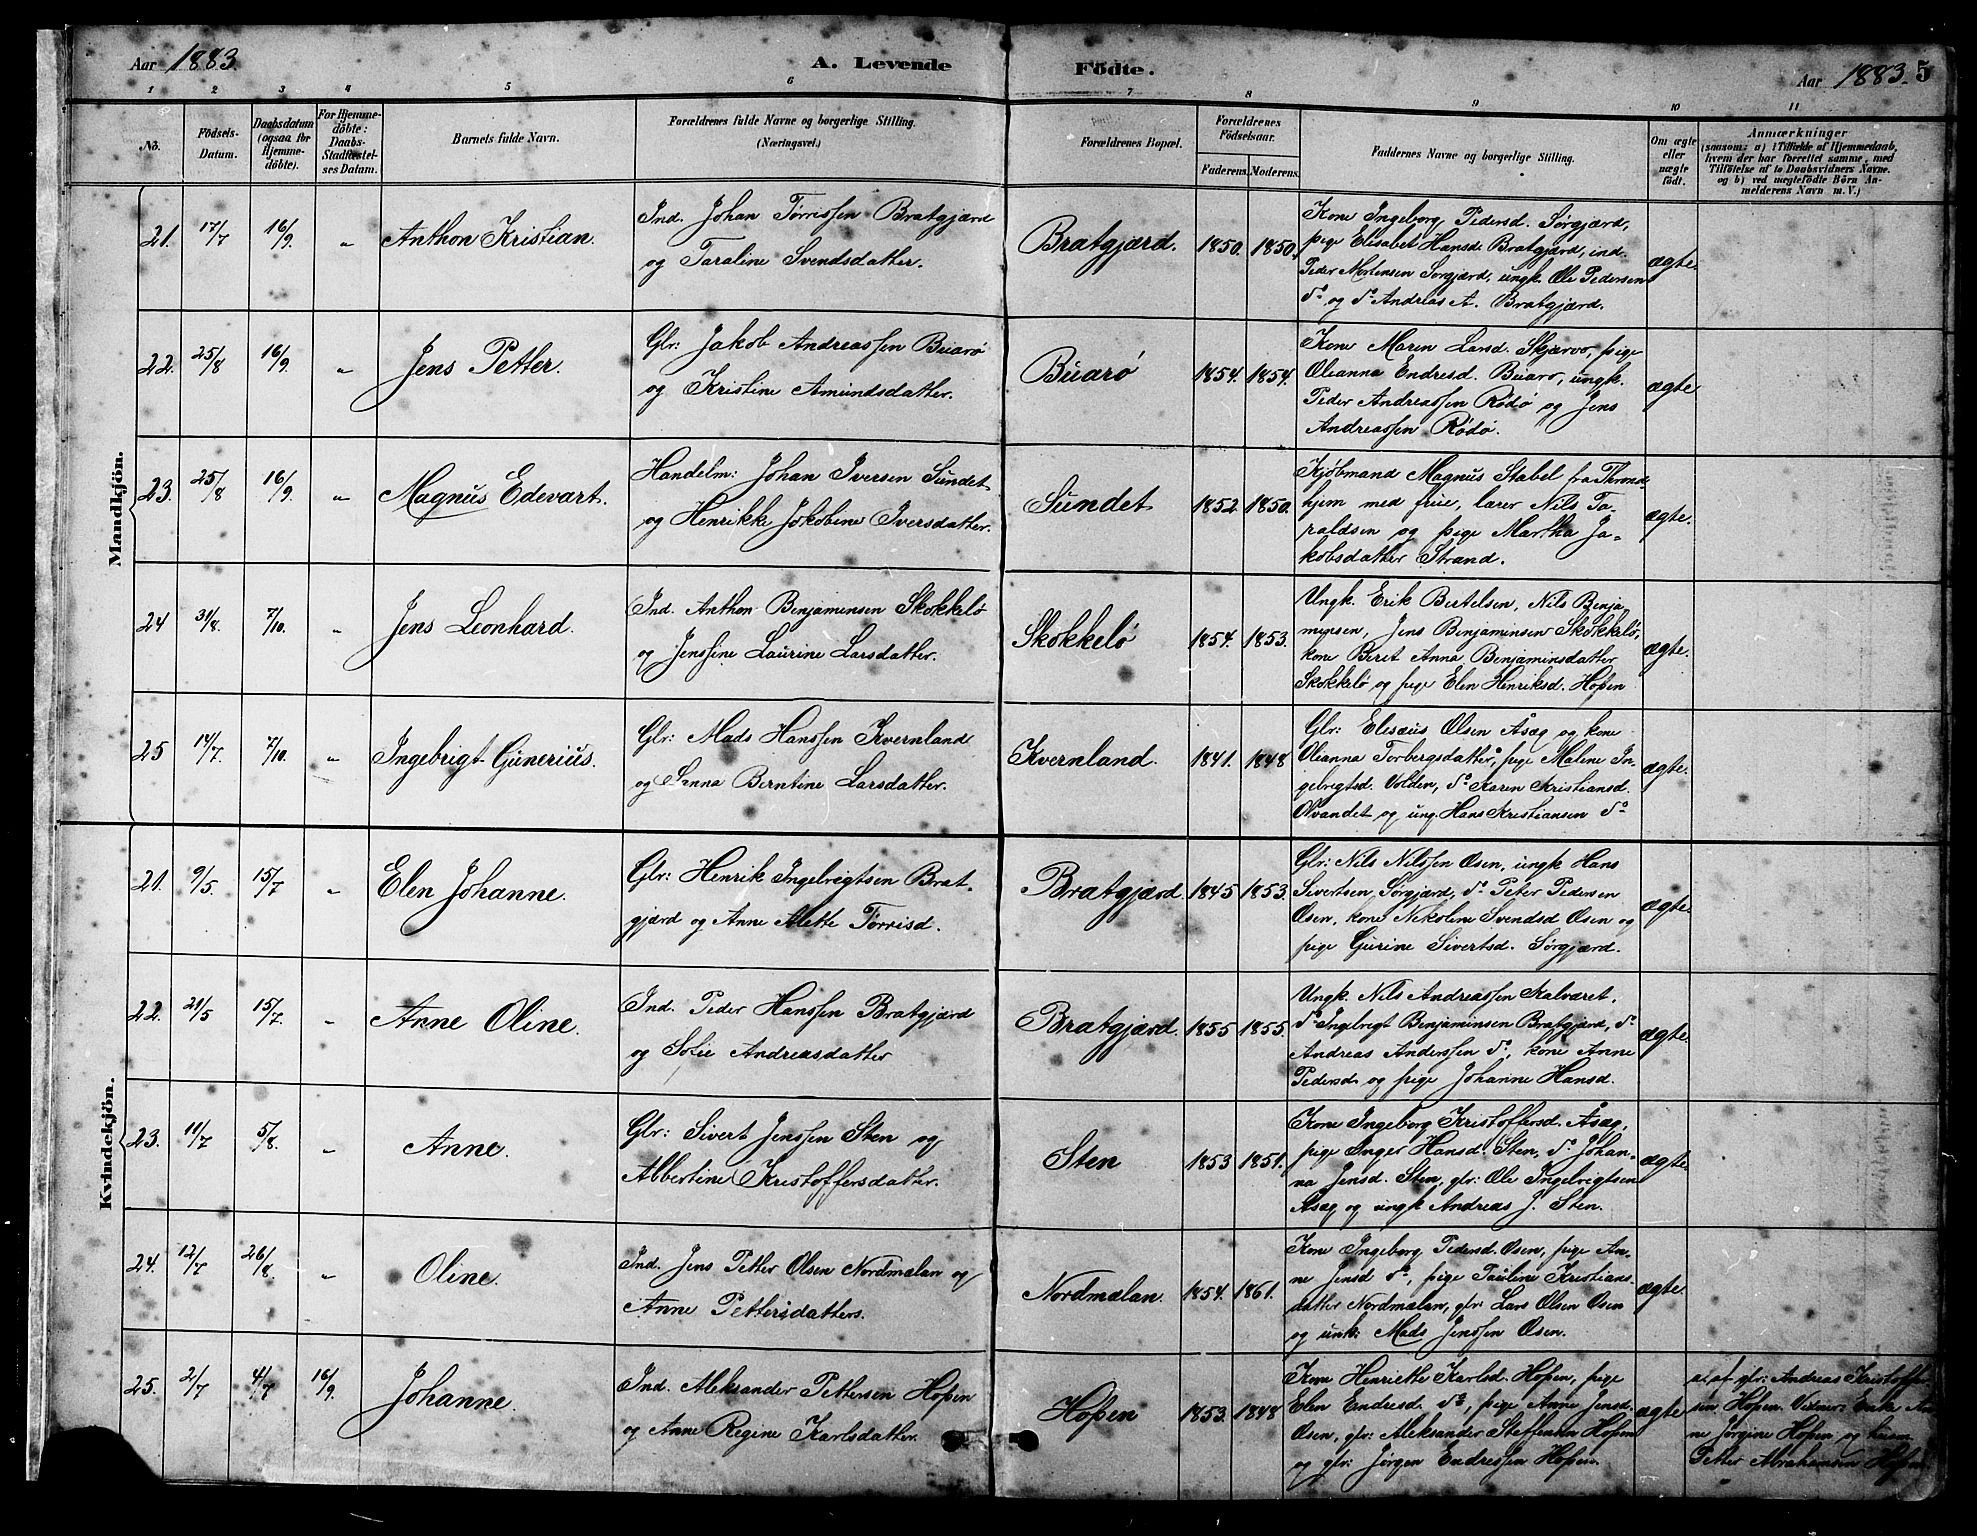 Aar 1883. A. Levende Födte. Aar 1883. 5
1 2 3 4 5 6 7 8 9 10 11
No. Födsels-Datum. Daabsdatum (ogsaa for Hjemme-döbte). For Hjemme-döbte: Daabs-Stadfæstel-ses Datum. Barnets fulde Navn. Forældrenes fulde Navne og borgerlige Stilling. (Næringsvei.) Forældrenes Bopæl. Forældrenes Födselsaar. Faderens. Moderens. Faddernes Navne og borgerlige Stilling. Om ægte eller uægte födt. Anmærkninger (saasom: a) i Tilfælde af Hjemmedaab, hvem der har forrettet samme, med Tilföielse af to Daabsvidners Navne. og b) ved uægtefödte Börn An-melderens Navn m. V.)
Mandkjön.
21. 17/7 16/9. " Anthon Kristian. Ind. Johan Tørrissen Bratgjærd
og Taraline Svendsdatter. Bratgjærd. 1850. 1850. ægte.
Kone Ingeborg Pedersd. Sørgjærd,
pige Elisabet Hansd. Bratgjærd, ind.
Peder Mortensen Sørgjærd, ungk. Ole Pedersen
do og do Andreas A. Bratgjærd.
22. 25/8 16/9. " Jens Petter. Glr: Jakob Andreassen Buarø
og Kristine Amundsdatter. Buarø 1854. 1854. ægte
Kone Maren Larsd. Skjærvø, pige
Olianna Endresd. Buarø, ungk.
Peder Andreassen Rødø og Jens
Andreassen Rødø.
23. 25/8 16/9. " Magnus Edevart. Handelm: Johan Iversen Sundet
og Henrikke Jokobine Iversdatter. Sundet 1852 1850. ægte.
Kjøbmand Magnus Stabel fra Thrond-
hjem med frue, lærer Nils Ta-
raldsen og pige Martha Ja-
kobsdatter Strand.
24 31/8. 7/10. " Jens Leonhard. Ind. Anthon Benjaminsen Skokkelø
og Jenssine Laurine Larsdatter. Skokkelø 1854. 1853. ægte.
Ungk. Erik Bertelsen, Nils Benja
minsen, Jens Benjaminsen Skokkelø,
kone Beret Anna Benjaminsdatter
Skokkelø og pige Elen Henriksd. Hopen
25 14/7. 7/10. " Ingebrigt Gunerius. Glr: Mads Hanssen Kvernland
og Sanna Berntine Larsdatter. Kvernland. 1841. 1848 ægte.
Glr: Elisæus Olsen Åsæg og kone
Olianna Torbergsdatter, pige Maline In-
gebrigtsd. Volden, do Karen Kristiansd.
Olvandet og ung. Hans Kristiansen do
Kvindekjön.
21. 9/5 15/7 " Elen Johanne. Glr: Henrik Ingebrigtsen Brat-
gjærd og Anne Alette Tørrisd. Bratgjærd. 1845 1853. ægte.
Glr: Nils Nilssen Osen, ungk Hans
Sivertsen, Sørgjærd, do Peter Pedersen
Osen, kone Nikoline Svendsd Osen og
pige Gurine Sivertsd. Sørgjærd.
22. 21/5 15/7. " Anne Oline. Ind. Peder Hanssen Bratgjærd
og Sofie Andreasdatter Bratgjærd. 1855 1855. ægte.
Ungk. Nils Andreassen Kalværet,
do Ingebrigt Benjaminsen Bratgjærd, do
Andreas Anderssen do, kone Anne
Pedersd. og pige Johanne Hansd.
23. 11/7 5/8. " Anne. Glr: Sivert Jenssen Sten og
Albertine Kristoffersdatter. Sten 1853 1851. ægte
Kone Ingeborg Kristoffersd. Åsæg,
pige Inger Hansd. Sten, do Johan-
na Jensd. Sten, glr: Ole Ingebrigtsen
Åsæg og ungk Andreas J. Sten.
24. 12/7 26/8. " Oline. Ind. Jens Petter Olsen Nordmælan og
Anne Pettersdatters. Nordmælan. 1854. 1861. ægte.
Kone Ingeborg Pedersd. Osen, pige An-
ne Jensd do, pige Pauline Kristians-
datter Nordmælan, glr: Lars Olsen Osen
og unk: Mads Jenssen Osen.
25. 2/7 4/7 16/9. Johanne. Ind. Aleksander Pettersen Hopen
og Anne Regine Karlsdatter. Hopen 1853. 1848 ægte
Kone Henriette Karlsd. Hopen, pige
Elen Endresd. do, pige Anne Jensd.
Osen, glr: Aleksander Steffensen Hopen
og glr: Jørgen Endressen Hopen.
a. af glr: Andreas Kristoffer
sen Hopen. Vidner: Enke An
ne Jørgine Hopen og husm.
Petter Abrahamsen Hopen